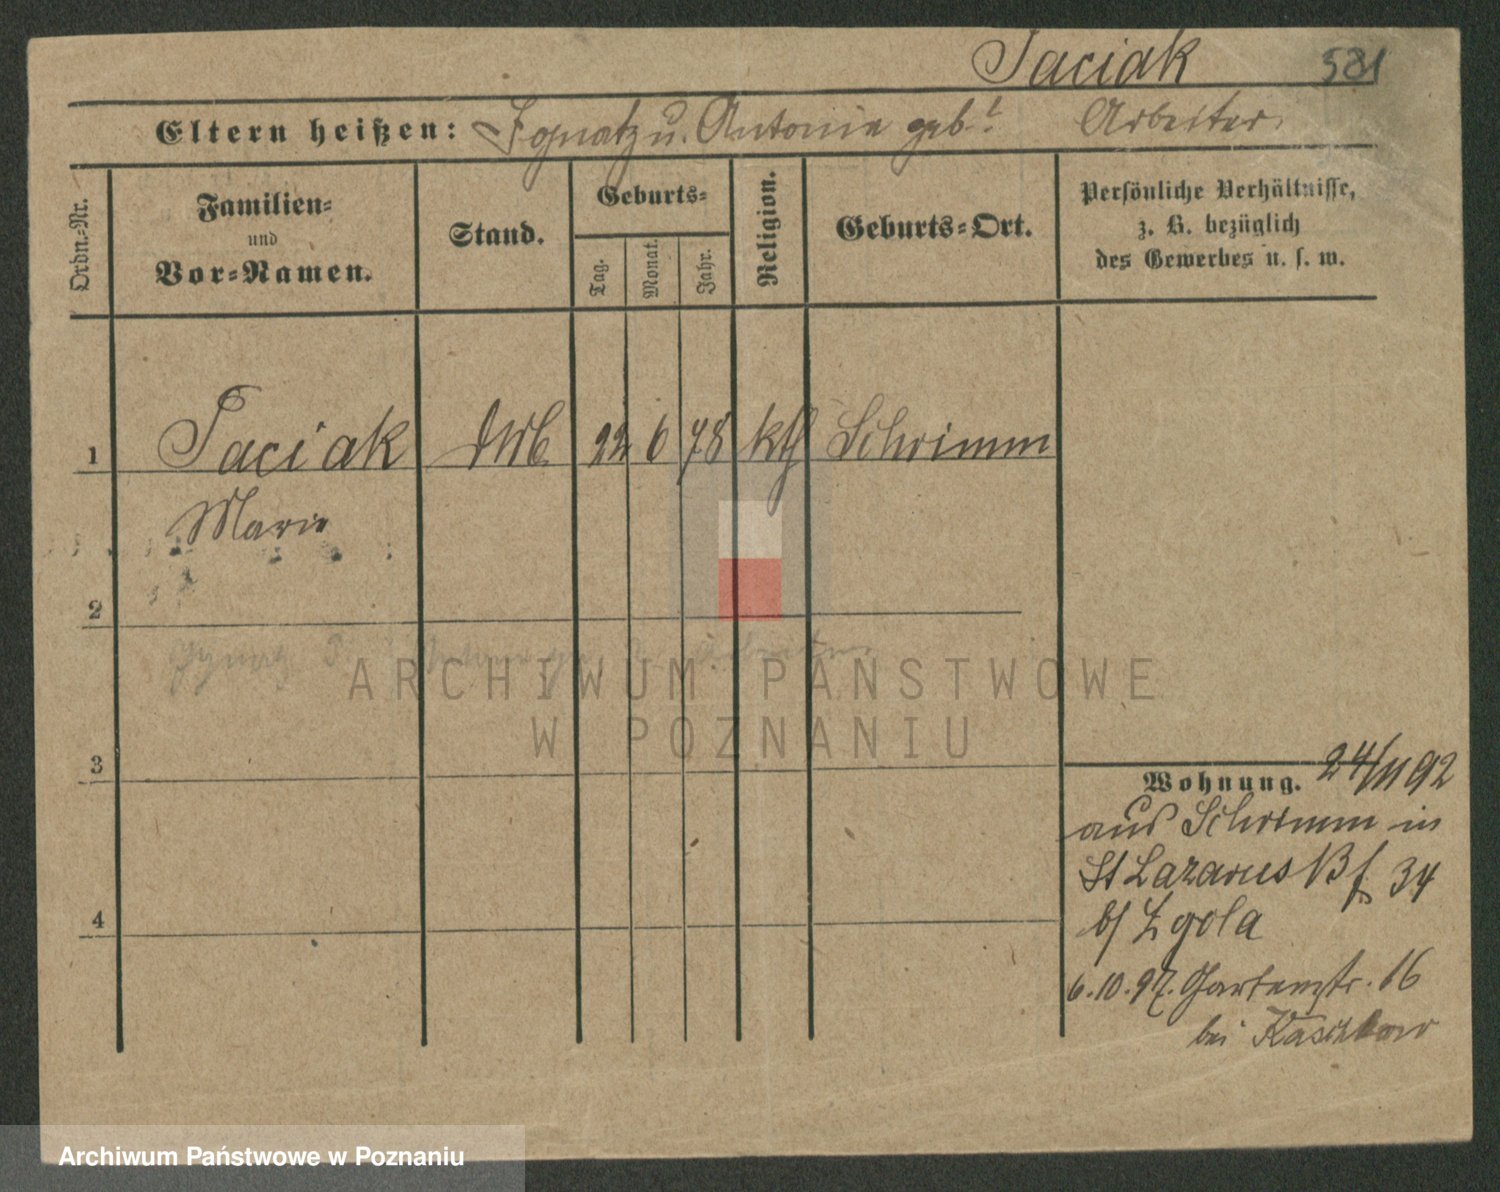 Paciak 581
Eltern heißen: Ignatz u. Antonie geb. ! Arbeiter
Ordn.-Nr.
Familien=
und
Vor=Namen.
Stand.
Geburts=
Tag.
Monat.
Jahr.
Religion.
Geburts=Ort.
Persönliche Verhältnisse,
z. B. bezüglich
des Gewerbes u. s. w.
1 Paciak 22 6 78 kth Schrimm
Marie
2
Ignatz
3
4
Wohnung. 24/11 92
aus Schrimm in
St Lazarus 34
b/ Zgola
6.10.97. Gartenstr. 16
bei
ARCHIWUM PAŃSTWOWE
W POZNANIU
Archiwum Państwowe w Poznaniu